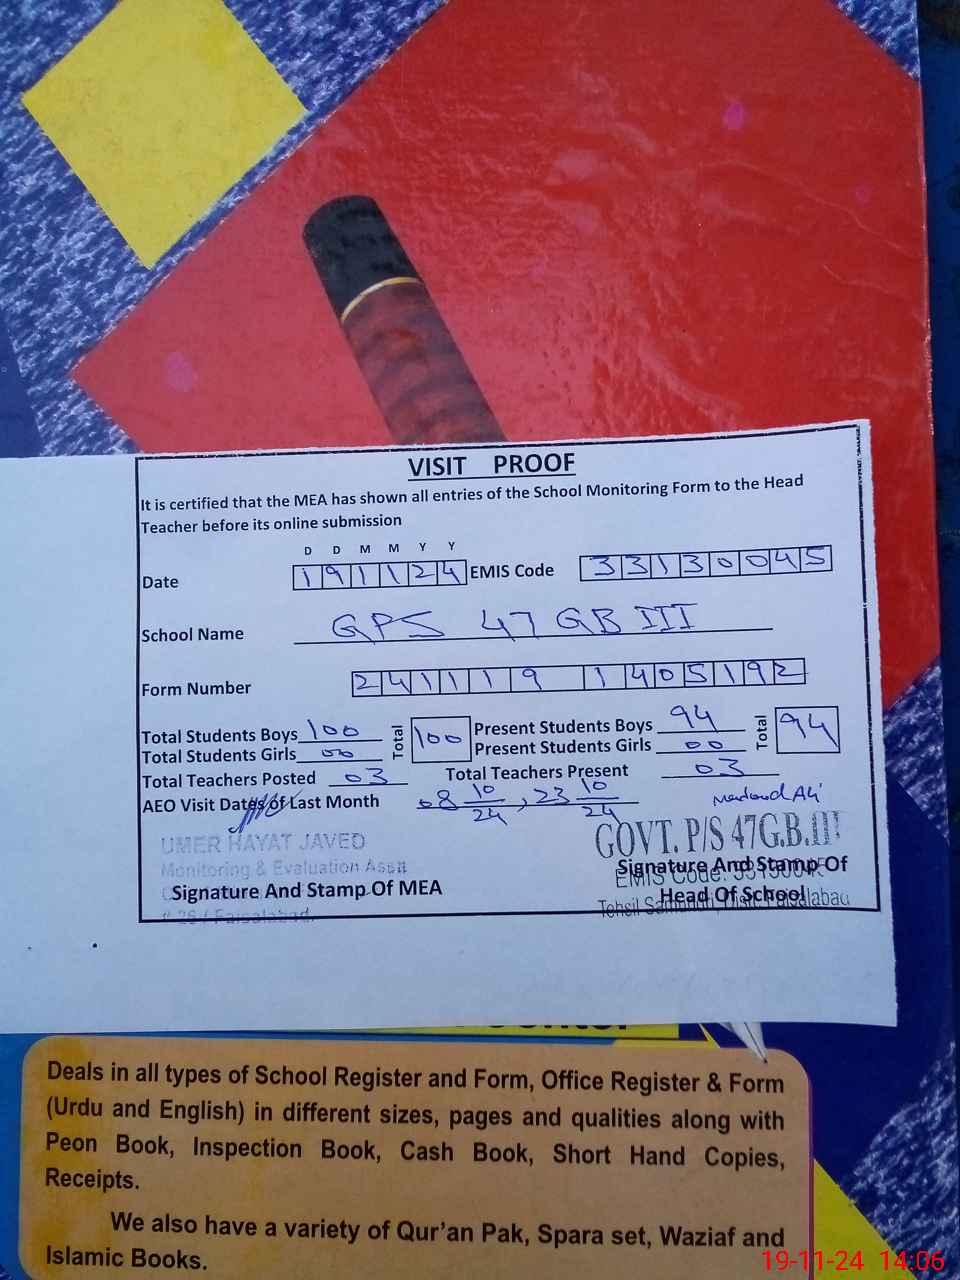 VISIT PROOF
It is certified that the MEA has shown all entries of the School Monitoring Form to the Head
Teacher before its online submission
D D M M Y Y
Date 191124 EMIS Code 33130045
School Name GPS 47 GB III
Form Number 241119 1405192
Total Students Boys 100 Total 100 Present Students Boys 94 Total 94
Total Students Girls 00 Present Students Girls 00
Total Teachers Posted 03 Total Teachers Present 03
AEO Visit Dates of Last Month 08 10/24, 23 10/24
UMER HAYAT JAVED
Monitoring & Evaluation Asstt
Signature And Stamp Of MEA
# 26 / Faisalabad.
Ali
GOVT. P/S 47G.B.III
Signature And Stamp Of
EMIS Code: 33130045
Head Of School
Tehsil Faisalabad
Deals in all types of School Register and Form, Office Register & Form
(Urdu and English) in different sizes, pages and qualities along with
Peon Book, Inspection Book, Cash Book, Short Hand Copies,
Receipts.
We also have a variety of Qur'an Pak, Spara set, Waziaf and
Islamic Books.
19-11-24 14:06